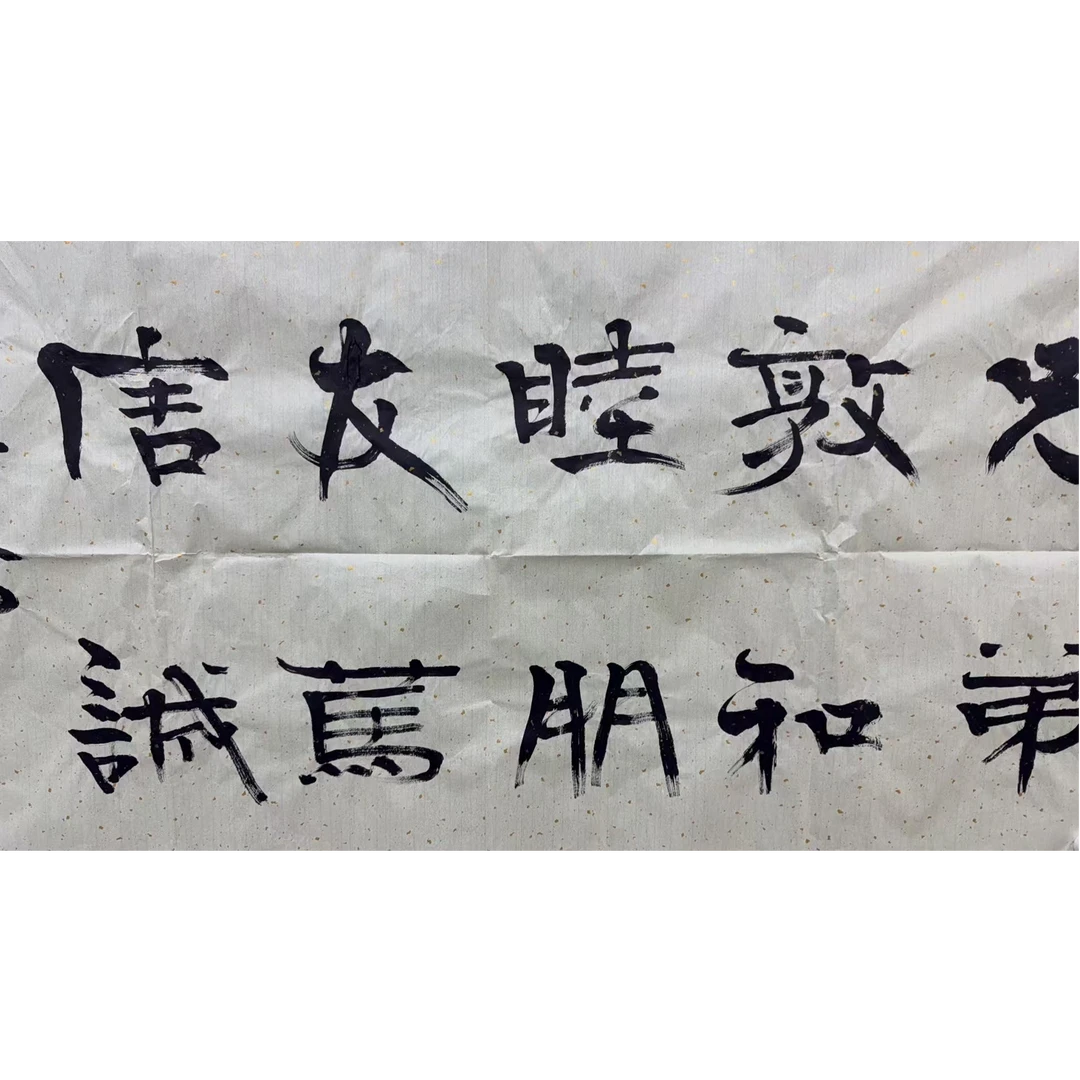 兄弟
敦和
睦朋
友篤
信誠